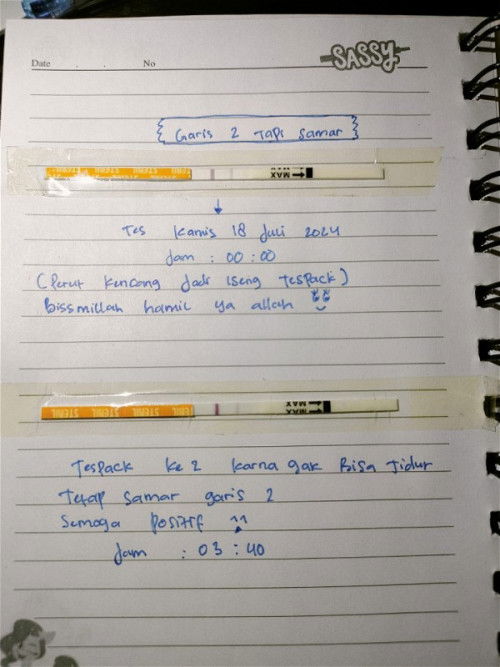 SASSY
Date . . No
Garis 2 Tapi Samar
STERIL STERIL STERIL
MAX
Tes Kamis 18 Juli 2024
Jam : 00:00
(Perut Kencang Jadi iseng Tespack)
Bissmillah hamil ya allah
STERIL STERIL STERIL
MAX
Tespack Ke 2 Karna gak Bisa Tidur
Tetap Samar garis 2
Semoga Positif ^^
Jam : 03 : 40